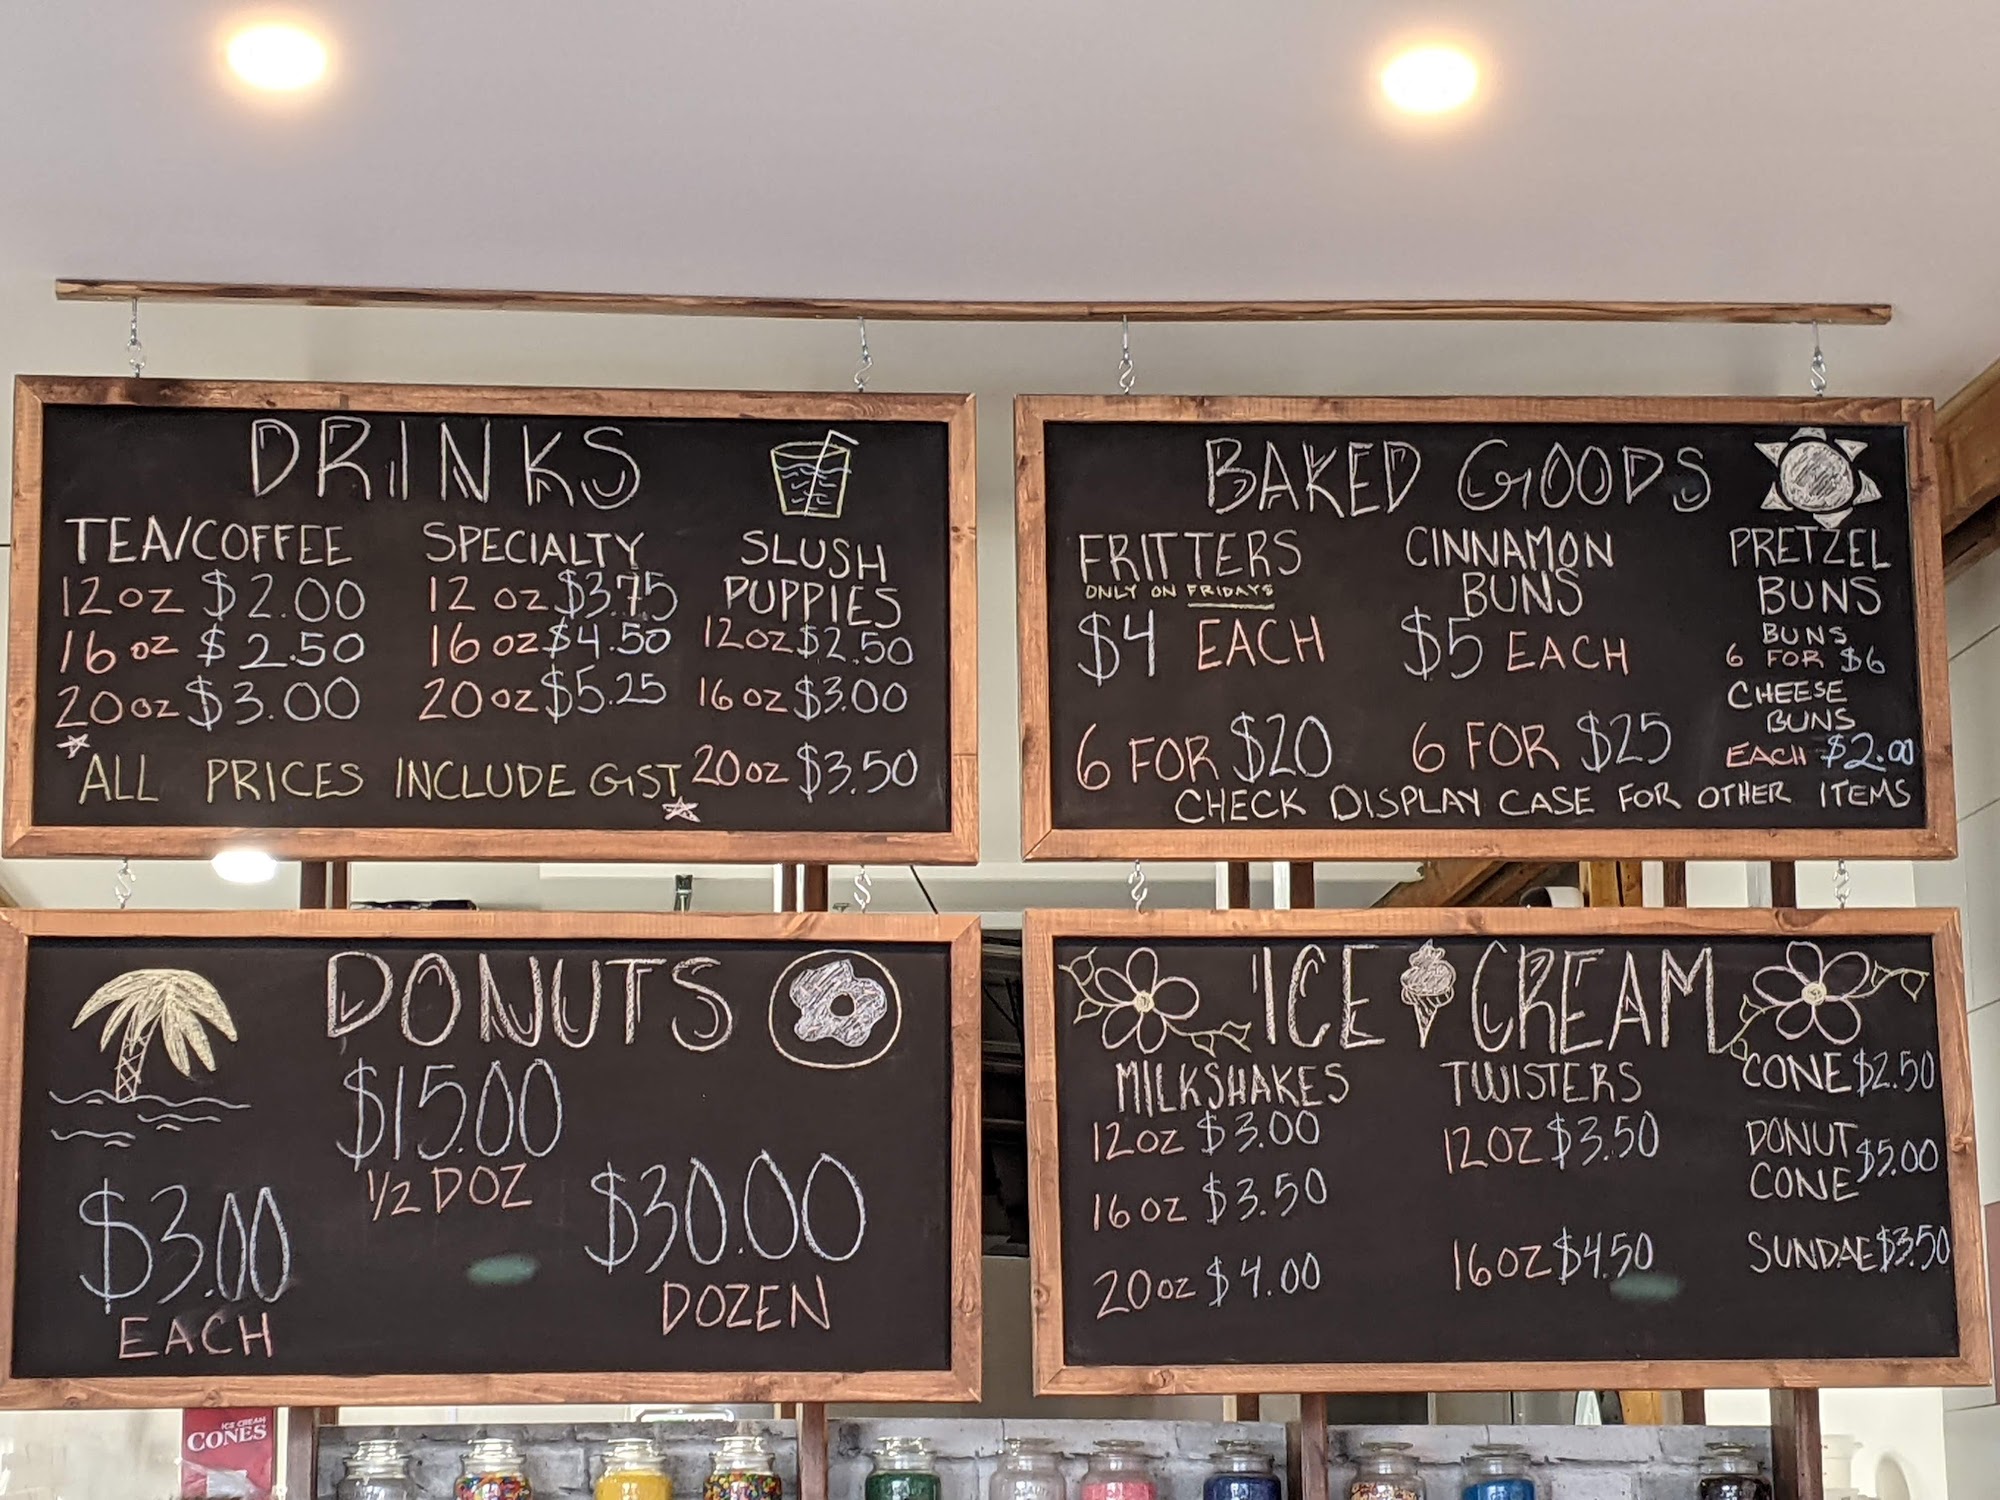 DRINKS
TEA/COFFEE
12oz $2.00
16oz $2.50
20oz $3.00
SPECIALTY
12 oz $3.75
16 oz $4.50
20oz $5.25
SLUSH
PUPPIES
12oz $2.50
16oz $3.00
20oz $3.50
ALL PRICES INCLUDE GST
BAKED GOODS
FRITTERS
ONLY ON FRIDAYS
$4 EACH
6 FOR $20
CINNAMON
BUNS
$5 EACH
6 FOR $25
PRETZEL
BUNS
BUNS
6 FOR $6
CHEESE
BUNS
EACH $2.00
CHECK DISPLAY CASE FOR OTHER ITEMS
DONUTS
$3.00
EACH
$15.00
1/2 DOZ
$30.00
DOZEN
ICE CREAM
MILKSHAKES
12oz $3.00
16oz $3.50
20oz $4.00
TWISTERS
12OZ $3.50
16OZ $4.50
CONE $2.50
DONUT
CONE $5.00
SUNDAE $3.50
ICE CREAM
CONES